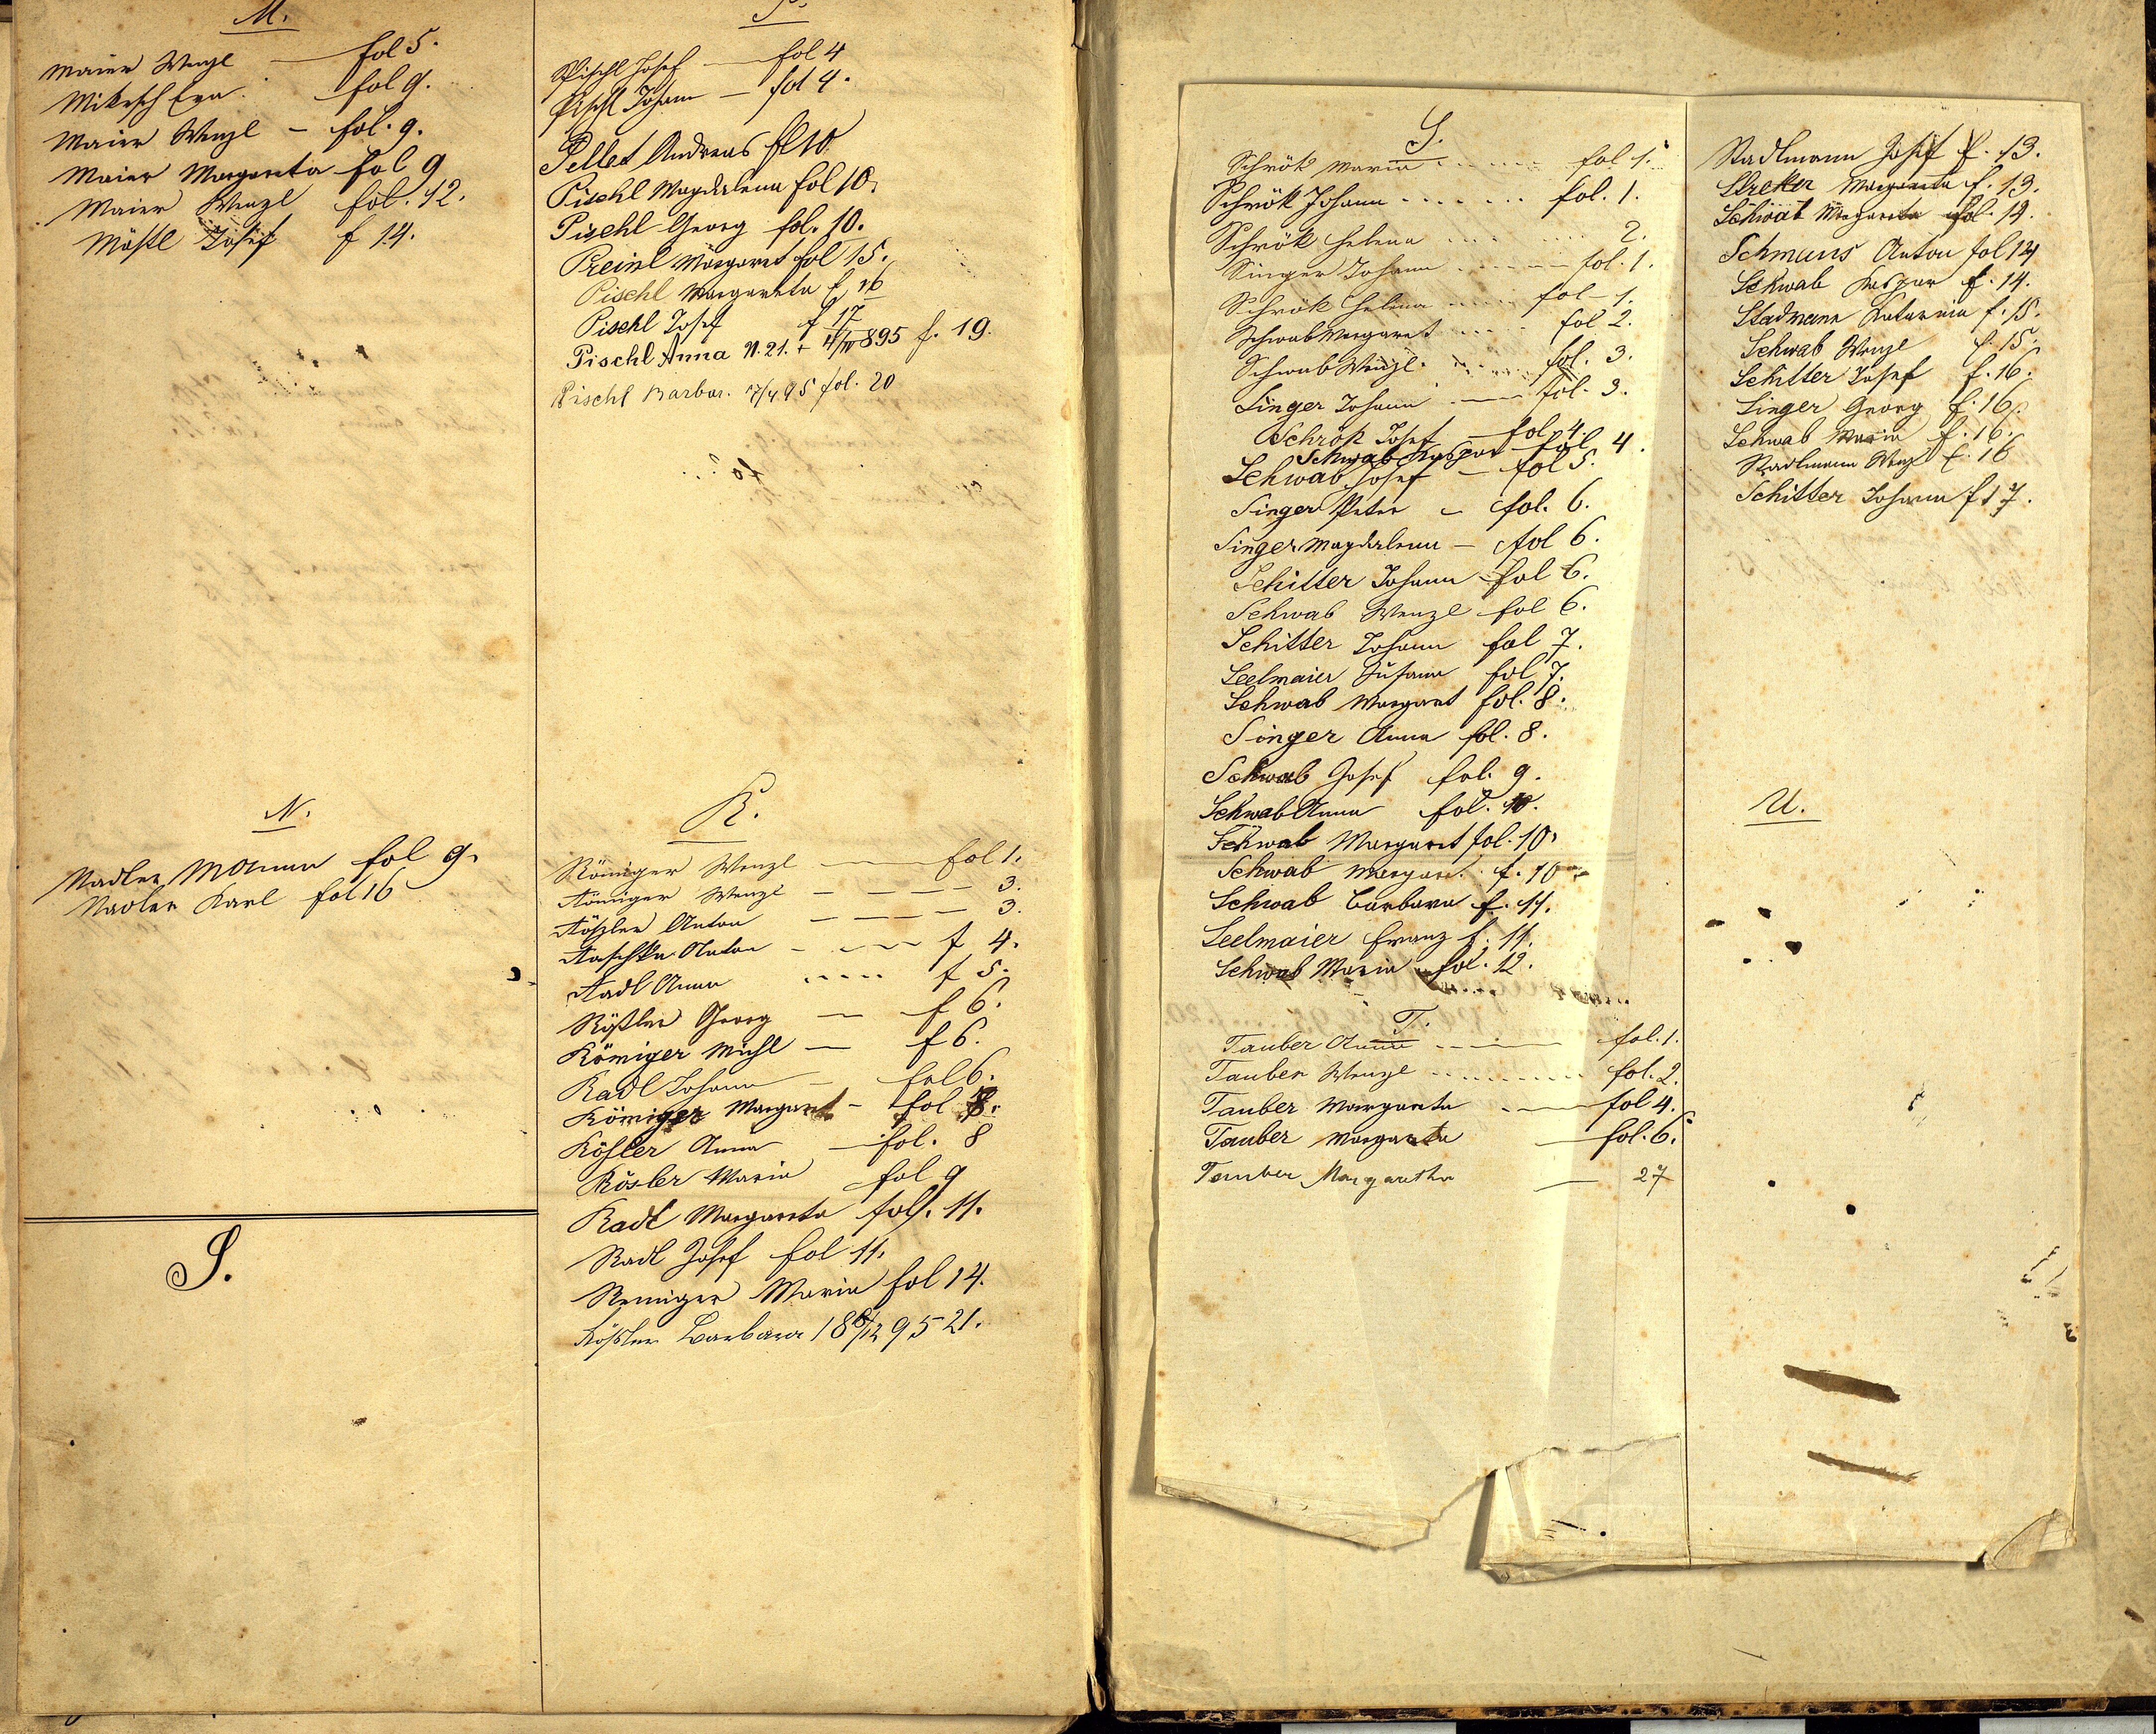 M.
Maier Wenzl — fol 5.
Miksch Eva fol 9.
Maier Wenzl – fol. 9.
Maier Margareta fol 9
Maier Wenzl fol. 12.
Mößl Josef f 14.
N.
Nadler fol 9.
Nadler Karl fol 16
S.
P.
Pischl Josef — fol 4
Pischl Johann — fol 4.
Pellet Andreas fol 10
Pischl Magdalena fol 10.
Pischl Georg fol. 10.
Preinl Margaret fol 15.
Pischl Margareta f 16
Pischl Josef f 17
Pischl Anna N. 21. + 4/IV 895 f. 19.
Pischl Barbar. 17/4 95 fol. 20
R.
Römiger Wenzl — fol 1.
Römiger Wenzl — — — — 3.
Rößler Anton — — — 3.
Raschka Anton — f 4.
Radl Anna ..... f 5.
Rößler Georg — f 6.
Römiger Michl — f 6.
Radl Johann — fol 6.
Römiger Margaret – fol 8.
Rößler Anna — fol. 8
Rösler Maria fol 9
Radl Margareta fol. 11.
Radl Josef fol 11.
Remiger Maria fol 14.
Rößler Barbara 18 6/12 95 21.
S.
Schrök Maria ...... fol 1.
Schrök Johann ....... fol. 1.
Schrök Helena ... .... 2.
Singer Johann ...... fol. 1.
Schrök Helena ..... fol – 1.
Schwab Margaret .... fol 2.
Schwab Wenzl ..... fol. 3.
Singer Johann — fol. 3.
Schrök Josef — fol. 4.
Schwab Kaspar fol. 4.
Schwab Josef — fol 5.
Singer Peter – fol. 6.
Singer Magdalena — fol 6.
Schitter Johann fol 6.
Schwab Wenzl fol 6.
Schitter Johann fol 7.
Seelmaier Susanna fol 7.
Schwab Margaret fol. 8.
Singer Anna fol. 8.
Schwab Josef fol. 9.
Schwab Anna fol. 10.
Schwab Margaret fol. 10.
Schwab Margaret. f. 10
Schwab Barbara f. 11.
Seelmaier Franz f. 11.
Schwab Maria fol. 12.
T.
Tauber Anna ..— fol. 1.
Tauber Wenzl ......... fol. 2.
Tauber Margareta .— fol 4.
Tauber Margareta — fol. 6.
Tauber Margaretha — 27
Stadlmann Josef f. 13.
Streker Margareta f. 13.
Schwab Margareta fol. 14.
Schmaus Anton fol 14
Schwab Kaspar f. 14.
Stadmann Katarina f. 15.
Schwab Wenzl f. 15.
Schitter Josef f. 16.
Singer Georg f. 16.
Schwab Maria f. 16.
Stadlmann Wenzl f. 16
Schitter Johann f 17.
U.